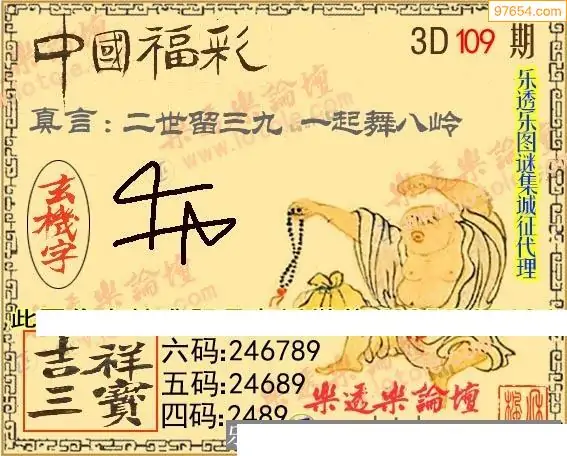 97654.com
中國福彩
3D 109 期
真言：二世留三九 一起舞八岭
乐透乐图谜集城征代理
玄機字
此
吉祥三寶
六码:246789
五码:24689
四码:2489
樂透樂論壇